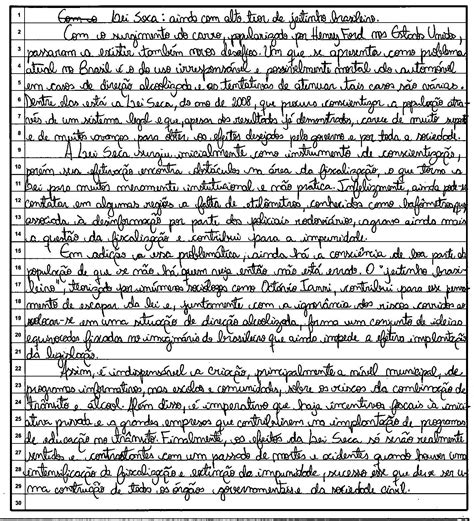 Lei Seca: ainda com alto teor de jeitinho brasileiro.
Com o surgimento do carro, popularizado por Henry Ford nos Estados Unidos,
passaram a existir também novos desafios. Um que se apresenta como problema
atual no Brasil é o do uso irresponsável e possivelmente mortal do automóvel
em casos de direção alcoolizada e as tentativas de atenuar tais casos são várias.
Dentre elas está a Lei Seca, do ano de 2008, que procura conscientizar a população atra-
vés de um sistema legal e que, apesar dos resultados já demonstrados, carece de muito suporte
e de muitos avanços para obter os efeitos desejados pelo governo e por toda a sociedade.
A Lei Seca surgiu, inicialmente, como instrumento de conscientização,
porém sua efetivação encontra obstáculos na área da fiscalização, o que torna a
Lei para muitos meramente institucional e não prática. Infelizmente, ainda pode-se
constatar em algumas regiões a falta de etilômetros, conhecidos como bafômetros, que
associada à desinformação por parte dos policiais rodoviários, agrava ainda mais
a questão da fiscalização e contribui para a impunidade.
Em adição a essa problemática, ainda há a consciência de boa parte da
população de que se não há quem veja então não está errado. O "jeitinho brasi-
leiro", teorizado por inúmeros sociólogos como Octávio Ianni, contribui para esse pensa-
mento de escapar da lei e, juntamente com a ignorância dos riscos corridos ao
colocar-se em uma situação de direção alcoolizada, forma um conjunto de ideias
equivocadas fixadas no imaginário do brasileiro que ainda impede a efetiva implantação
da legislação.
Assim, é indispensável a criação, principalmente a nível municipal, de
programas informativos, nas escolas e comunidades, sobre os riscos da combinação de
trânsito e álcool. Além disso, é imperativo que haja incentivos fiscais à inici-
ativa privada e a grandes empresas que contribuírem na implantação de programas
de educação no trânsito. Finalmente, os efeitos da Lei Seca só serão realmente
sentidos e contrastantes com um passado de mortes e acidentes quando houver uma
intensificação da fiscalização e extinção da impunidade, sucesso esse que deve ser u-
ma construção de todos os órgãos governamentais e da sociedade civil.